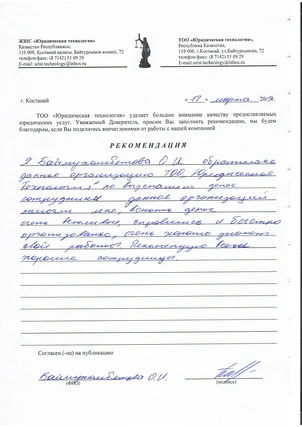 ЖШС «Юридическая технология»
Казақстан Республикасы,
110 000, Қостанай қаласы, Байтурсынов көшесі, 72
телефон/факс: (8 7142) 53 09 29
E-mail: urist.technology@inbox.ru
ТОО «Юридическая технология»,
Республика Казахстан,
110 000, г.Костанай, ул. Байтурсынова, 72
телефон/факс: (8 7142) 53 09 29
E-mail: urist.technology@inbox.ru
г. Костанай
марта
ТОО "Юридическая технология" уделяет большое внимание качеству предоставляемых
юридических услуг. Уважаемый Доверитель, просим Вас заполнить рекомендацию, мы будем
благодарны, если Вы поделитесь впечатлениями от работы с нашей компанией
РЕКОМЕНДАЦИЯ
Я Баймухамбетова О.И. обратилась
данную организацию ТОО "Юридическая
Технология" по взысканию денег
сотрудники данной организации
помогли мне, денег
очень вежливые, справились и быстро
организованно, очень хорошо знают
свой работы. Рекомендую всем
хорошие сотрудницы.
Согласен (-на) на публикацию
Баймухамбетова О.И.
(ФИО)
(подпись)